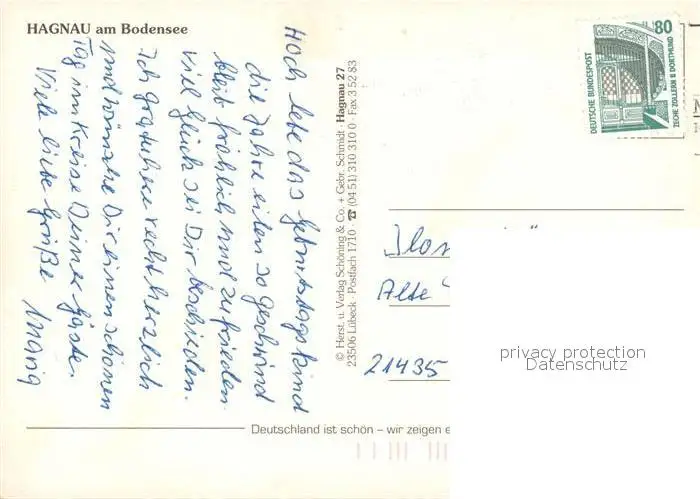 HAGNAU am Bodensee
Hoch lebe das Geburtstagskind
die Jahre eilen so geschwind
bleib fröhlich und zufrieden
viel Glück sei Dir beschieden.
Ich gratuliere recht herzlich
und wünsche Dir einen schönen
Tag im Kreise Deiner Gäste.
Viele liebe Grüße Maria
© Herst. u. Verlag Schöning & Co. + Gebr. Schmidt · Hagnau 27
23506 Lübeck · Postfach 1710 · ☎ (04 51) 310 310 0 · Fax 3 52 83
80
DEUTSCHE BUNDESPOST
ZECHE ZOLLERN II DORTMUND
Alte
21435
privacy protection
Datenschutz
Deutschland ist schön – wir zeigen e